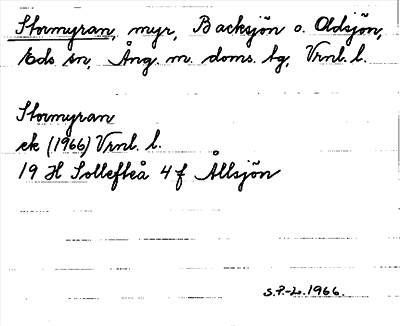 Stormyran, myr, Backsjön o. Oldsjön,
Eds sn, Ång. m. doms. tg, Vrnl. l.
Stormyran
ek (1966) Vrnl. l.
19 H Sollefteå 4 f Ållsjön
S.P.-L. 1966.